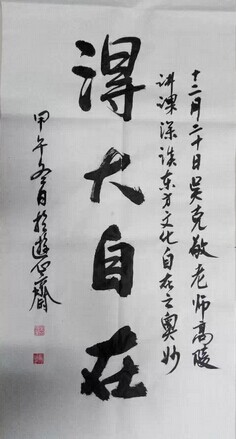 十二月二十日吴克敬老师高陵
讲课深谈东方文化自在之奥妙
得大自在
甲午冬日於游心斋